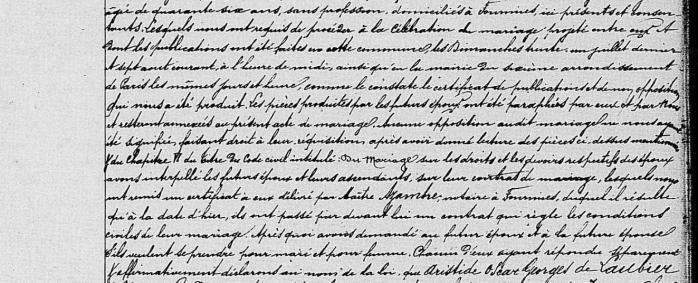 âgée de quarante six ans, sans profession, domiciliés à Fourmies, ici présents et consen
tants. Lesquels nous ont requis de procéder à la célébration du mariage projeté entre eux et
dont les publications ont été faites en cette commune, les Dimanches trente un juillet dernier
et sept août courant, à l'heure de midi, ainsi qu'en la mairie du seizième arrondissement
de Paris les mêmes jours et heure, comme le constate le certificat de publications et de non opposition
qui nous a été produit. Les pièces produites par les futurs époux ont été paraphées par eux et par Nous
et resteront annexées au présent acte de mariage. Aucune opposition audit mariage ne nous ayant
été signifiée, faisant droit à leur réquisition, après avoir donné lecture des pièces ci-dessus mentionnées
du Chapitre VI du titre du Code civil intitulé: Du Mariage sur les droits et les devoirs respectifs des époux
avons interpellé les futurs époux et leurs ascendants, sur leur contrat de mariage, lesquels nous
ont remis un certificat à eux délivré par Maître notaire à Fourmies, duquel il résulte
qu'à la date d'hier, ils ont passé par devant lui un contrat qui règle les conditions
civiles de leur mariage. Après quoi avons demandé au futur époux et à la future épouse
s'ils veulent se prendre pour mari et pour femme. Chacun d'eux ayant répondu séparément
et affirmativement déclarons au nom de la loi, que Aristide Oscar Georges de Laubier